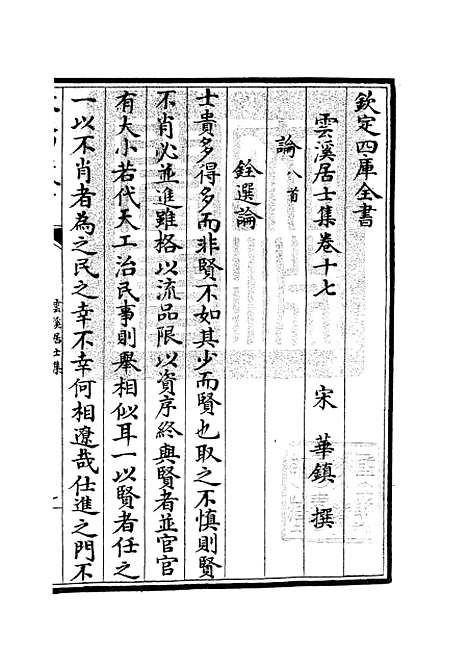 欽定四庫全書
雲溪居士集卷十七
宋 華鎮 撰
論八首
銓選論
士貴多得多而非賢不如其少而賢也取之不慎則賢
不肖必並進雖格以流品限以資序終與賢者並官官
有大小若代天工治民事則舉相似耳一以賢者任之
一以不肖者為之民之幸不幸何相遼哉仕進之門不
雲溪居士集